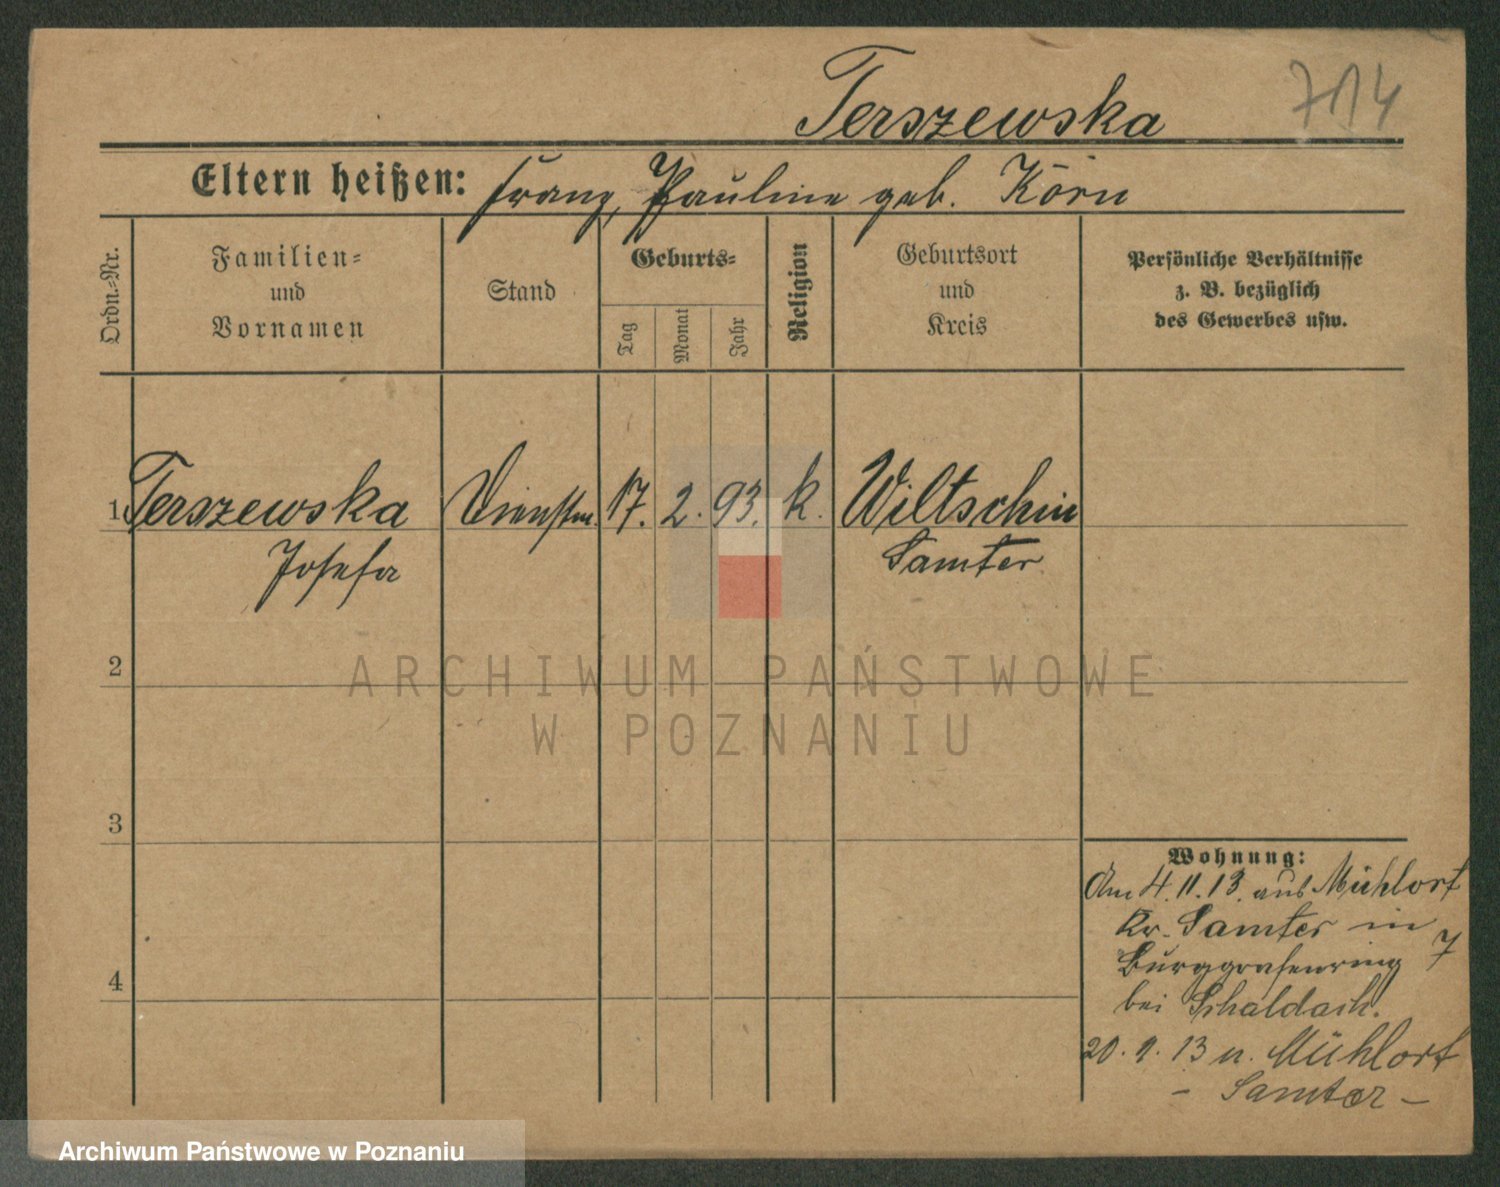 Terszewska
714
Eltern heißen: Franz, Pauline geb. Körn
Ordn.-Nr.
Familien-
und
Vornamen
Stand
Geburts-
Tag
Monat
Jahr
Religion
Geburtsort
und
Kreis
Persönliche Verhältnisse
z. B. bezüglich
des Gewerbes usw.
1. Terszewska Dienstm. 17. 2. 93. k. Wiltschin
Josefa Samter
2
3
4
Wohnung:
Am 4. 11. 13. aus Mühlort
Kr. Samter in
Burggrafenring 7
bei Schaldach.
20. 9. 13 n. Mühlort
- Samter -
ARCHIWUM PAŃSTWOWE
W POZNANIU
Archiwum Państwowe w Poznaniu